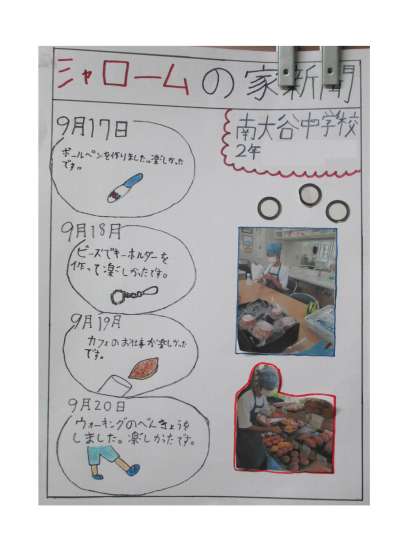 シャロームの家新聞
南大谷中学校
2年
9月17日
ボールペンを作りました。楽しかった
です。
9月18日
ビーズでキーホルダーを
作って楽しかたです。
9月19日
カフェのお仕事が楽しかった
です。
9月20日
ウォーキングのべんきょうを
しました。楽しかたです。